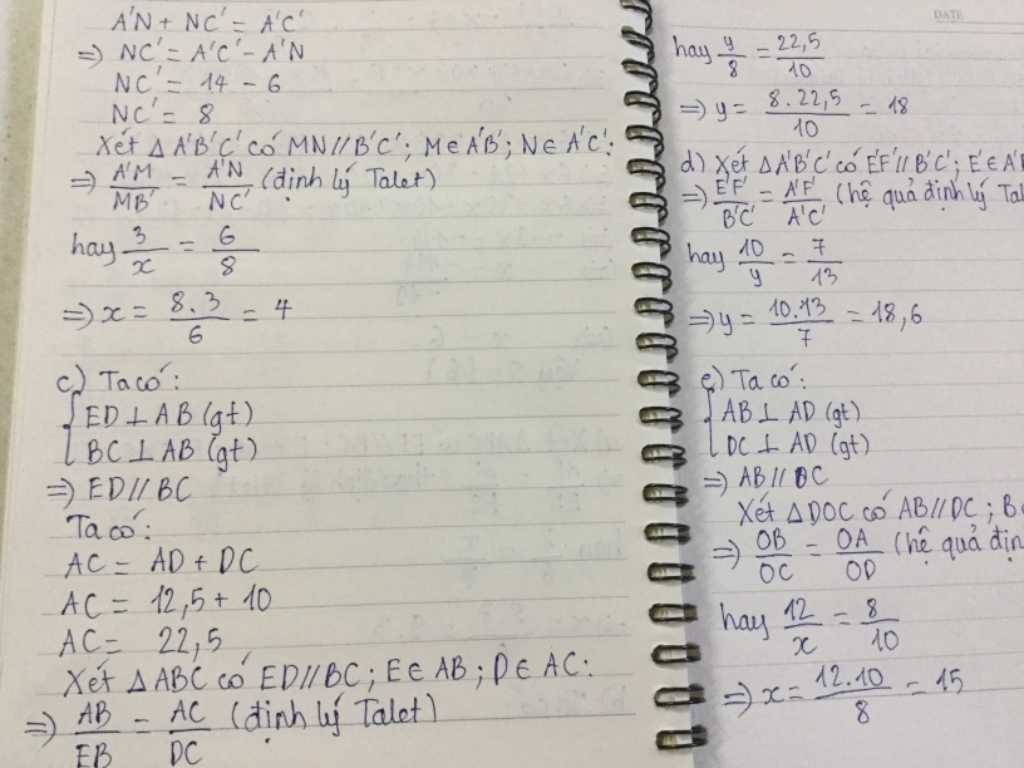 A'N + NC' = A'C'
⇒ NC' = A'C' - A'N
NC' = 14 - 6
NC' = 8
Xét Δ A'B'C' có MN // B'C'; M ∈ A'B'; N ∈ A'C':
⇒ A'M/MB' = A'N/NC' (định lý Talet)
hay 3/x = 6/8
⇒ x = 8.3/6 = 4
c) Ta có:
ED ⊥ AB (gt)
BC ⊥ AB (gt)
⇒ ED // BC
Ta có:
AC = AD + DC
AC = 12,5 + 10
AC = 22,5
Xét Δ ABC có ED // BC; E ∈ AB; D ∈ AC:
⇒ AB/EB = AC/DC (định lý Talet)
DATE
hay y/8 = 22,5/10
⇒ y = 8.22,5/10 = 18
d) Xét Δ A'B'C' có E'F' // B'C'; E' ∈
⇒ E'F'/B'C' = A'F'/A'C' (hệ quả định lý Tal
hay 10/y = 7/13
⇒ y = 10.13/7 = 18,6
e) Ta có:
AB ⊥ AD (gt)
DC ⊥ AD (gt)
⇒ AB // DC
Xét Δ DOC có AB // DC; B
⇒ OB/OC = OA/OD (hệ quả địn
hay 12/x = 8/10
⇒ x = 12.10/8 = 15